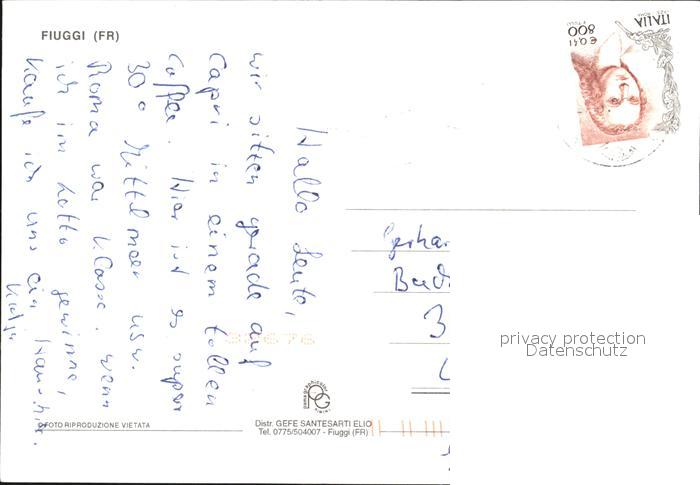 FIUGGI (FR)
Hallo Leute,
wir sitzen gerade auf
Capri in einem tollen
Caffee. Hier ist es super
30° Mittelmeer usw.
Roma war Klasse. Wenn
ich im Lotto gewinne,
kaufe ich uns ein Haus hier.
Katja
ITALIA
800
€ 0,41
Gerhar
Bad
3
privacy protection
Datenschutz
FOTO RIPRODUZIONE VIETATA
Distr. GEFE SANTESARTI ELIO
Tel. 0775/504007 - Fiuggi (FR)